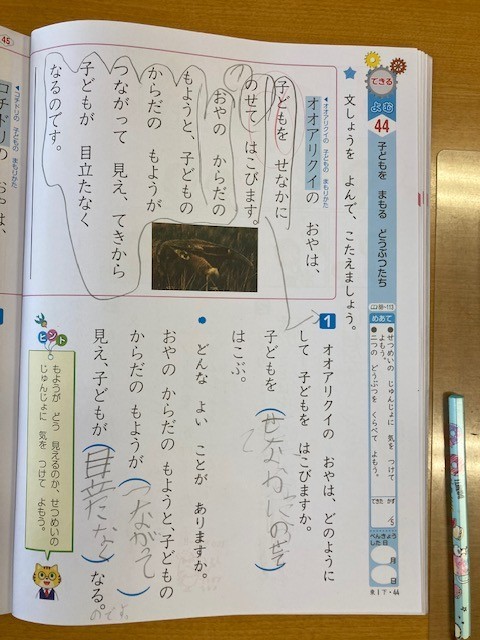 できる
よむ
44
子どもを まもる どうぶつたち
めあて
●せつめいの じゅんじょに 気を つけて よもう。
●二つの どうぶつを くらべて よもう。
できた かず
べんきょうした日
月
日
東Ⅰ下・44
★文しょうを よんで、こたえましょう。
◀オオアリクイの 子どもの まもりかた
オオアリクイの おやは、
子どもを せなかに
のせて はこびます。
おやの からだの
もようと、子どもの
からだの もようが
つながって 見え、てきから
子どもが 目立たなく
なるのです。
1
オオアリクイの おやは、どのように
して 子どもを はこびますか。
子どもを(せなかにのせて)
はこぶ。
●どんな よい ことが ありますか。
おやの からだの もようと、子どもの
からだの もようが(つながって)
見え、子どもが(目立たなく)なる。
のです
ヒント
もようが どう 見えるのか、せつめいの
じゅんじょに 気を つけて よもう。
45
◀コチドリの 子どもの まもりかた
コチドリの おやは、